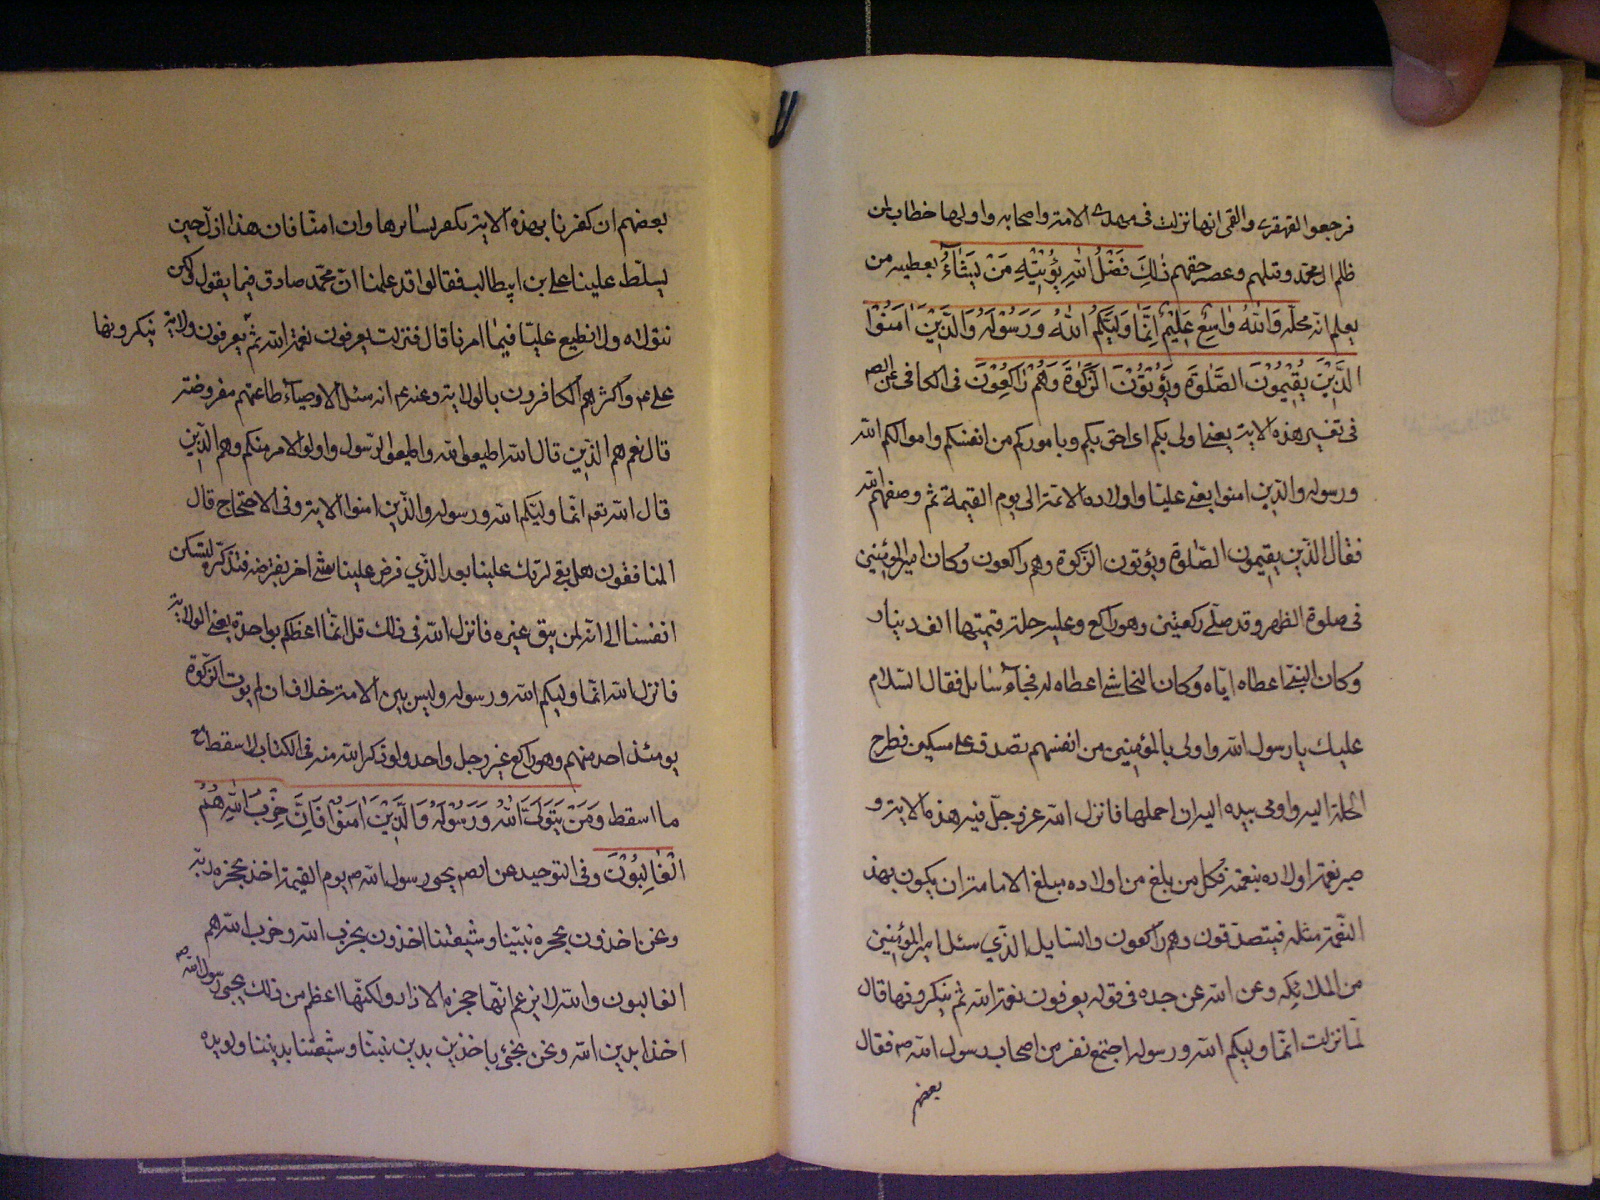 فرجعوا القهقرى والقمى انها نزلت فى مهدى الامة واصحابه واولها خطاب لمن
ظلم ال محمد وقتلهم وغصب حقهم ذٰلِكَ فَضْلُ اللّٰهِ يُؤْتِيْهِ مَنْ يَشَاءُ يعطيه من
يعلم انه محله وَاللّٰهُ وٰاسِعٌ عَلِيْمٌ اِنَّمٰا وَلِيُّكُمُ اللّٰهُ وَرَسُوْلُهُ وَالَّذِيْنَ اٰمَنُوْا
الَّذِيْنَ يُقِيْمُوْنَ الصَّلٰوةَ وَيُؤْتُوْنَ الزَّكٰوةَ وَهُمْ رٰاكِعُوْنَ فى الكافى عن الصم
فى تفسير هذه الاية يعنى اولى بكم اى احق بكم وباموركم من انفسكم واموالكم الله
ورسوله والذين امنوا يعنى عليا واولاده الائمة الى يوم القيمة ثم وصفهم الله
فقال الذين يقيمون الصلوة ويؤتون الزكوة وهم راكعون وكان امير المؤمنين
فى صلوة الظهر وقد صلى ركعتين وهو راكع وعليه حلة قيمتها الف دينار
وكان النبى اعطاه اياه وكان النجاشى اعطاه له فجاء سائل فقال السلام
عليك يا رسول الله واولى بالمؤمنين من انفسهم تصدق على مسكين فطرح
الحلة اليه واومى بيده اليه ان احملها فانزل الله عز وجل فيه هذه الاية و
صير نعمة اولاده بنعمته فكل من بلغ من اولاده مبلغ الامامة ان يكون بهذه
النعمة مثله فيتصدقون وهم راكعون والسايل الذي سئل امير المؤمنين
من الملائكه وعن الله عن جده فى قوله يعرفون نعمة الله ثم ينكرونها قال
لما نزلت انما وليكم الله ورسوله اجتمع نفر من اصحاب رسول الله ص فقال
بعضهم
بعضهم ان كفرنا بهذه الاية نكفر بسائرها وان امنا فان هذا اذل حين
يسلط علينا على بن ابيطالب فقالوا قد علمنا ان محمد صادق فيما يقول لكن
نتولاه ولا نطيع عليا فيما امرنا قال فنزلت يعرفون نعمة الله ثم يعرفون ولاية ينكرونها
على ع واكثرهم الكافرون بالولاية وعنه ع انه سئل الاوصياء طاعتهم مفروضة
قال نعم هم الذين قال الله اطيعوا الله واطيعوا الرسول واولو الامر منكم وهم الذين
قال الله تعه انما وليكم الله ورسوله والذين امنوا الاية وفى الاحتجاج قال
المنافقون هل بقى لربك علينا بعد الذي فرض علينا شئ اخر يفترضه فتذكر لتسكن
انفسنا الى انه لم يبق غيره فانزل الله فى ذلك قل انما اعظكم بواحدة يعنى الولاية
فانزل الله انما وليكم الله ورسوله وليس بين الامة خلاف ان لم يوت الزكوة
يومئذ احد منهم وهو راكع غير رجل واحد ولو ذكر الله منه فى الكتاب لاسقط مع
ما اسقط وَمَنْ يَتَوَلَّ اللّٰهَ وَرَسُوْلَهُ وَالَّذِيْنَ اٰمَنُوْا فَاِنَّ حِزْبَ اللّٰهِ هُمُ
الْغٰالِبُوْنَ وفى التوحيد عن الصم يجئ رسول الله ص يوم القيمة اخذ بحجزة ربه
ونحن اخذون بحجزة نبينا وشيعتنا اخذون بحزب الله وحزب الله هم
الغالبون والله لا يزعم انها حجزة الازار ولكنها اعظم من ذلك يجئ رسول الله ص
اخذا بدين الله ونحن نجئ باخذين بدين نبينا وشيعتنا بديننا ولويده